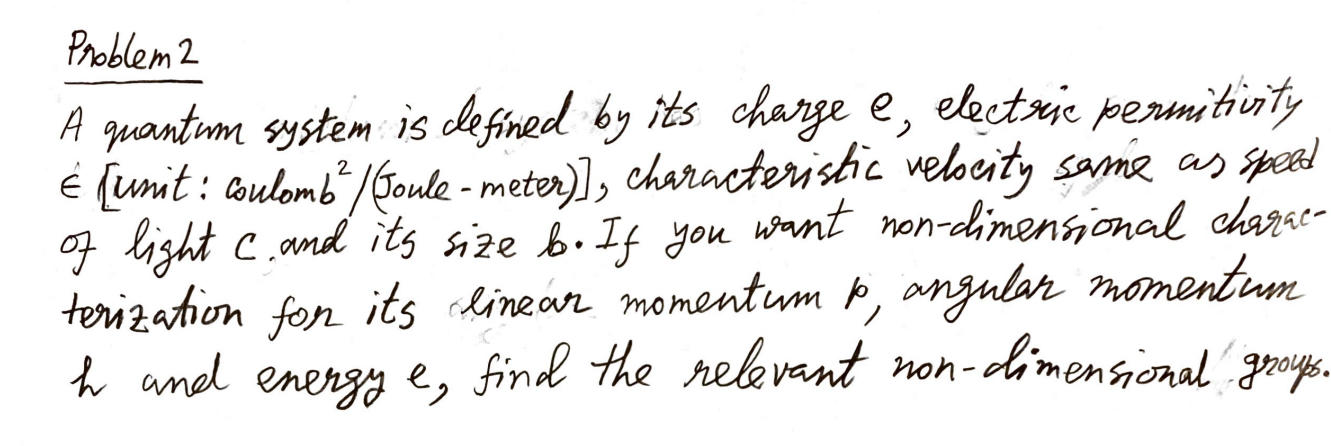 Problem 2
A quantum system is defined by its charge e, electric permitivity
ϵ [unit: coulomb²/(Joule-meter)], characteristic velocity same as speed
of light c. and its size b. If you want non-dimensional charac-
terization for its linear momentum p, angular momentum
h and energy e, find the relevant non-dimensional groups.